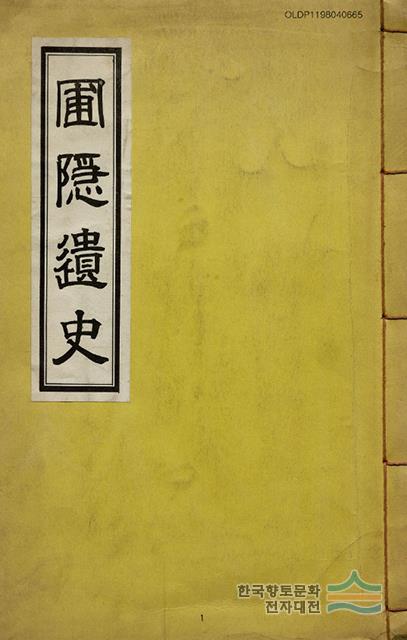 OLDP1198040665
圃隠遺史
1
한국향토문화
전자대전